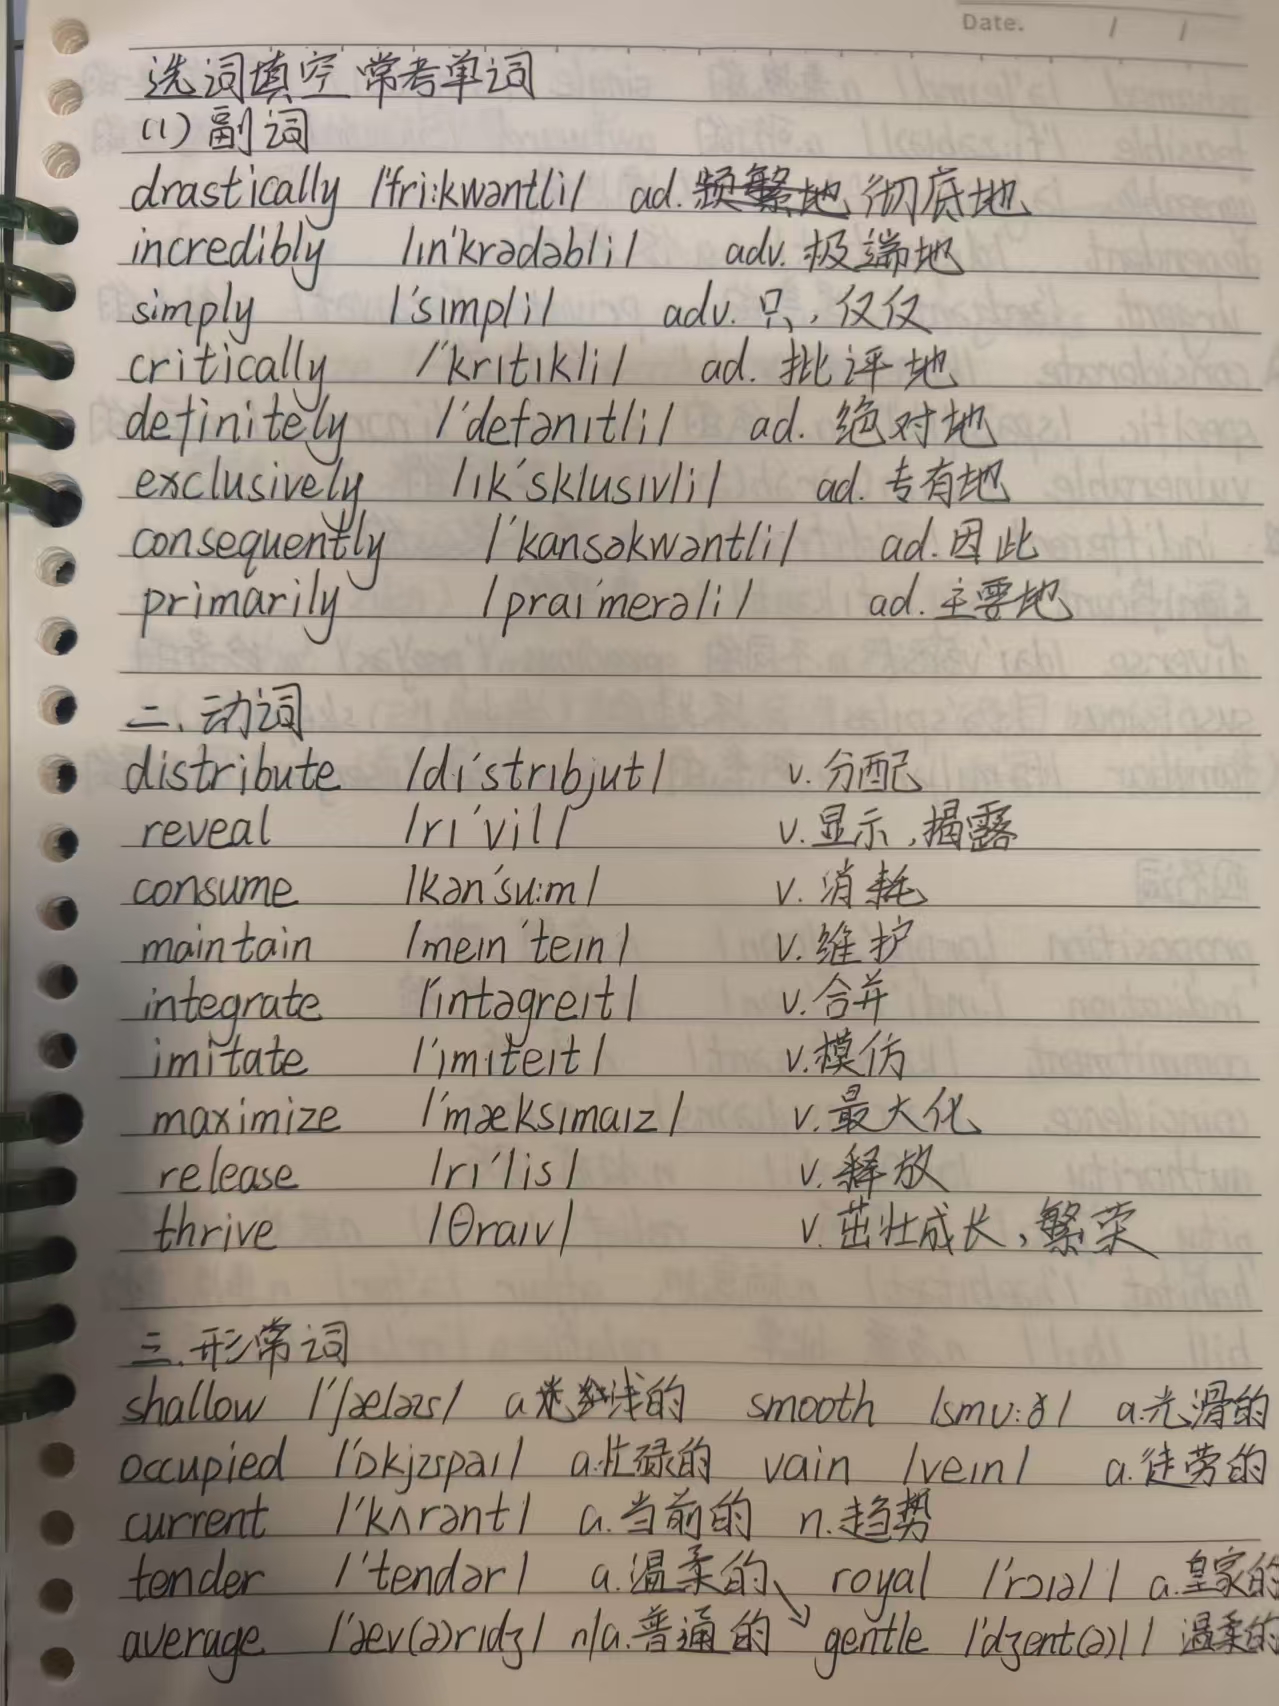 Date. / /
选词填空 常考单词
(1) 副词
drastically /'fri:kwəntli/ ad. 频繁地 彻底地
incredibly /ın'krədəbli/ adv. 极端地
simply /'sımpli/ adv. 只, 仅仅
critically /'krıtıkli/ ad. 批评地
definitely /'defənıtli/ ad. 绝对地
exclusively /ık'sklusıvli/ ad. 专有地
consequently /'kansəkwəntli/ ad. 因此
primarily /prai'merəli/ ad. 主要地
二. 动词
distribute /dı'strıbjut/ v. 分配
reveal /rı'vil/ v. 显示, 揭露
consume /kən'su:m/ v. 消耗
maintain /meın'teın/ v. 维护
integrate /'ıntəgreıt/ v. 合并
imitate /'ımıteıt/ v. 模仿
maximize /'mæksımaız/ v. 最大化
release /rı'lis/ v. 释放
thrive /θraıv/ v. 茁壮成长, 繁荣
三. 形常词
shallow /'ʃæləʊ/ a. 浅的 smooth /smu:ð/ a. 光滑的
occupied /'ɒkjʊpaı/ a. 忙碌的 vain /veın/ a. 徒劳的
current /'kʌrənt/ a. 当前的 n. 趋势
tender /'tendər/ a. 温柔的 royal /'rɔıəl/ a. 皇家的
average /'æv(ə)rıdʒ/ n/a. 普通的 gentle /'dʒent(ə)l/ 温柔的